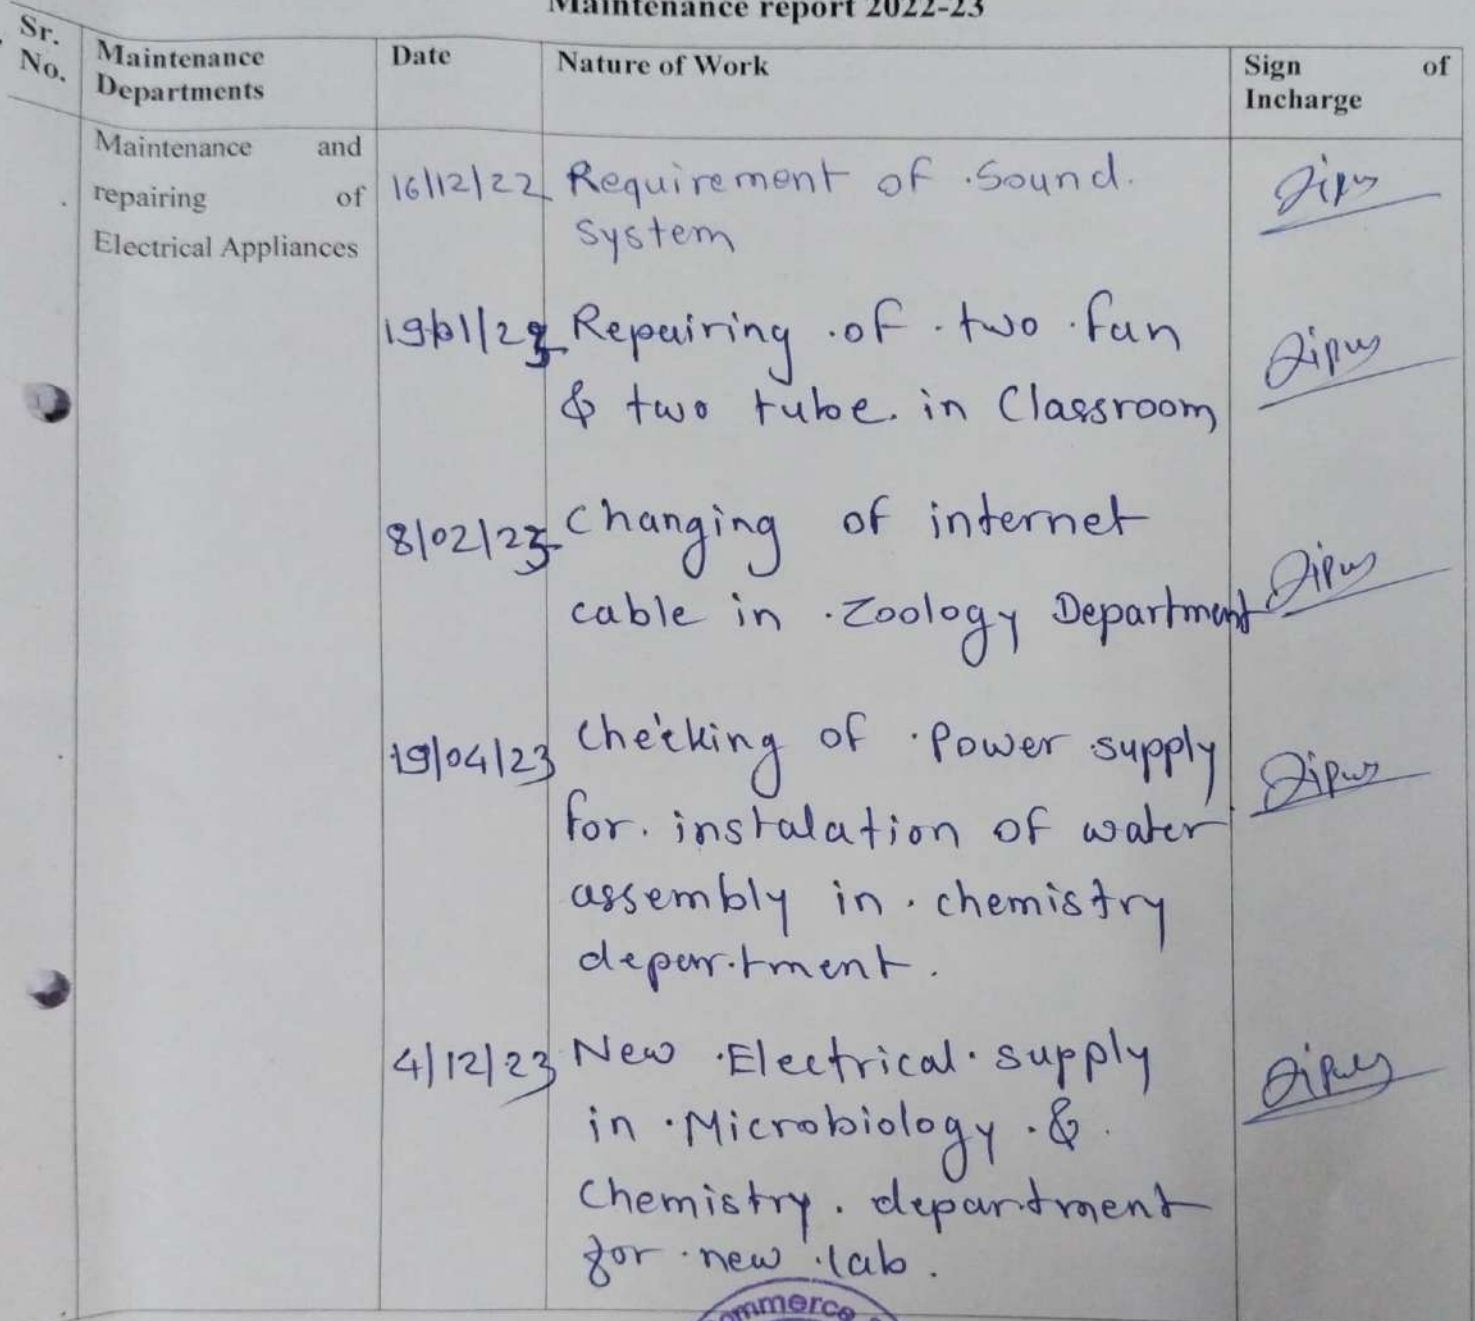 Maintenance report 2022-23
Sr. No.
Maintenance Departments
Date
Nature of Work
Sign of Incharge
Maintenance and
repairing of
Electrical Appliances
16/12/22 Requirement of Sound
system
19/01/23 Repairing of two fan
& two tube in Classroom
8/02/23 Changing of internet
cable in Zoology Department
19/04/23 Checking of Power supply
for instalation of water
assembly in chemistry
department.
4/12/23 New Electrical supply
in Microbiology &
Chemistry department
for new lab.
ommerce